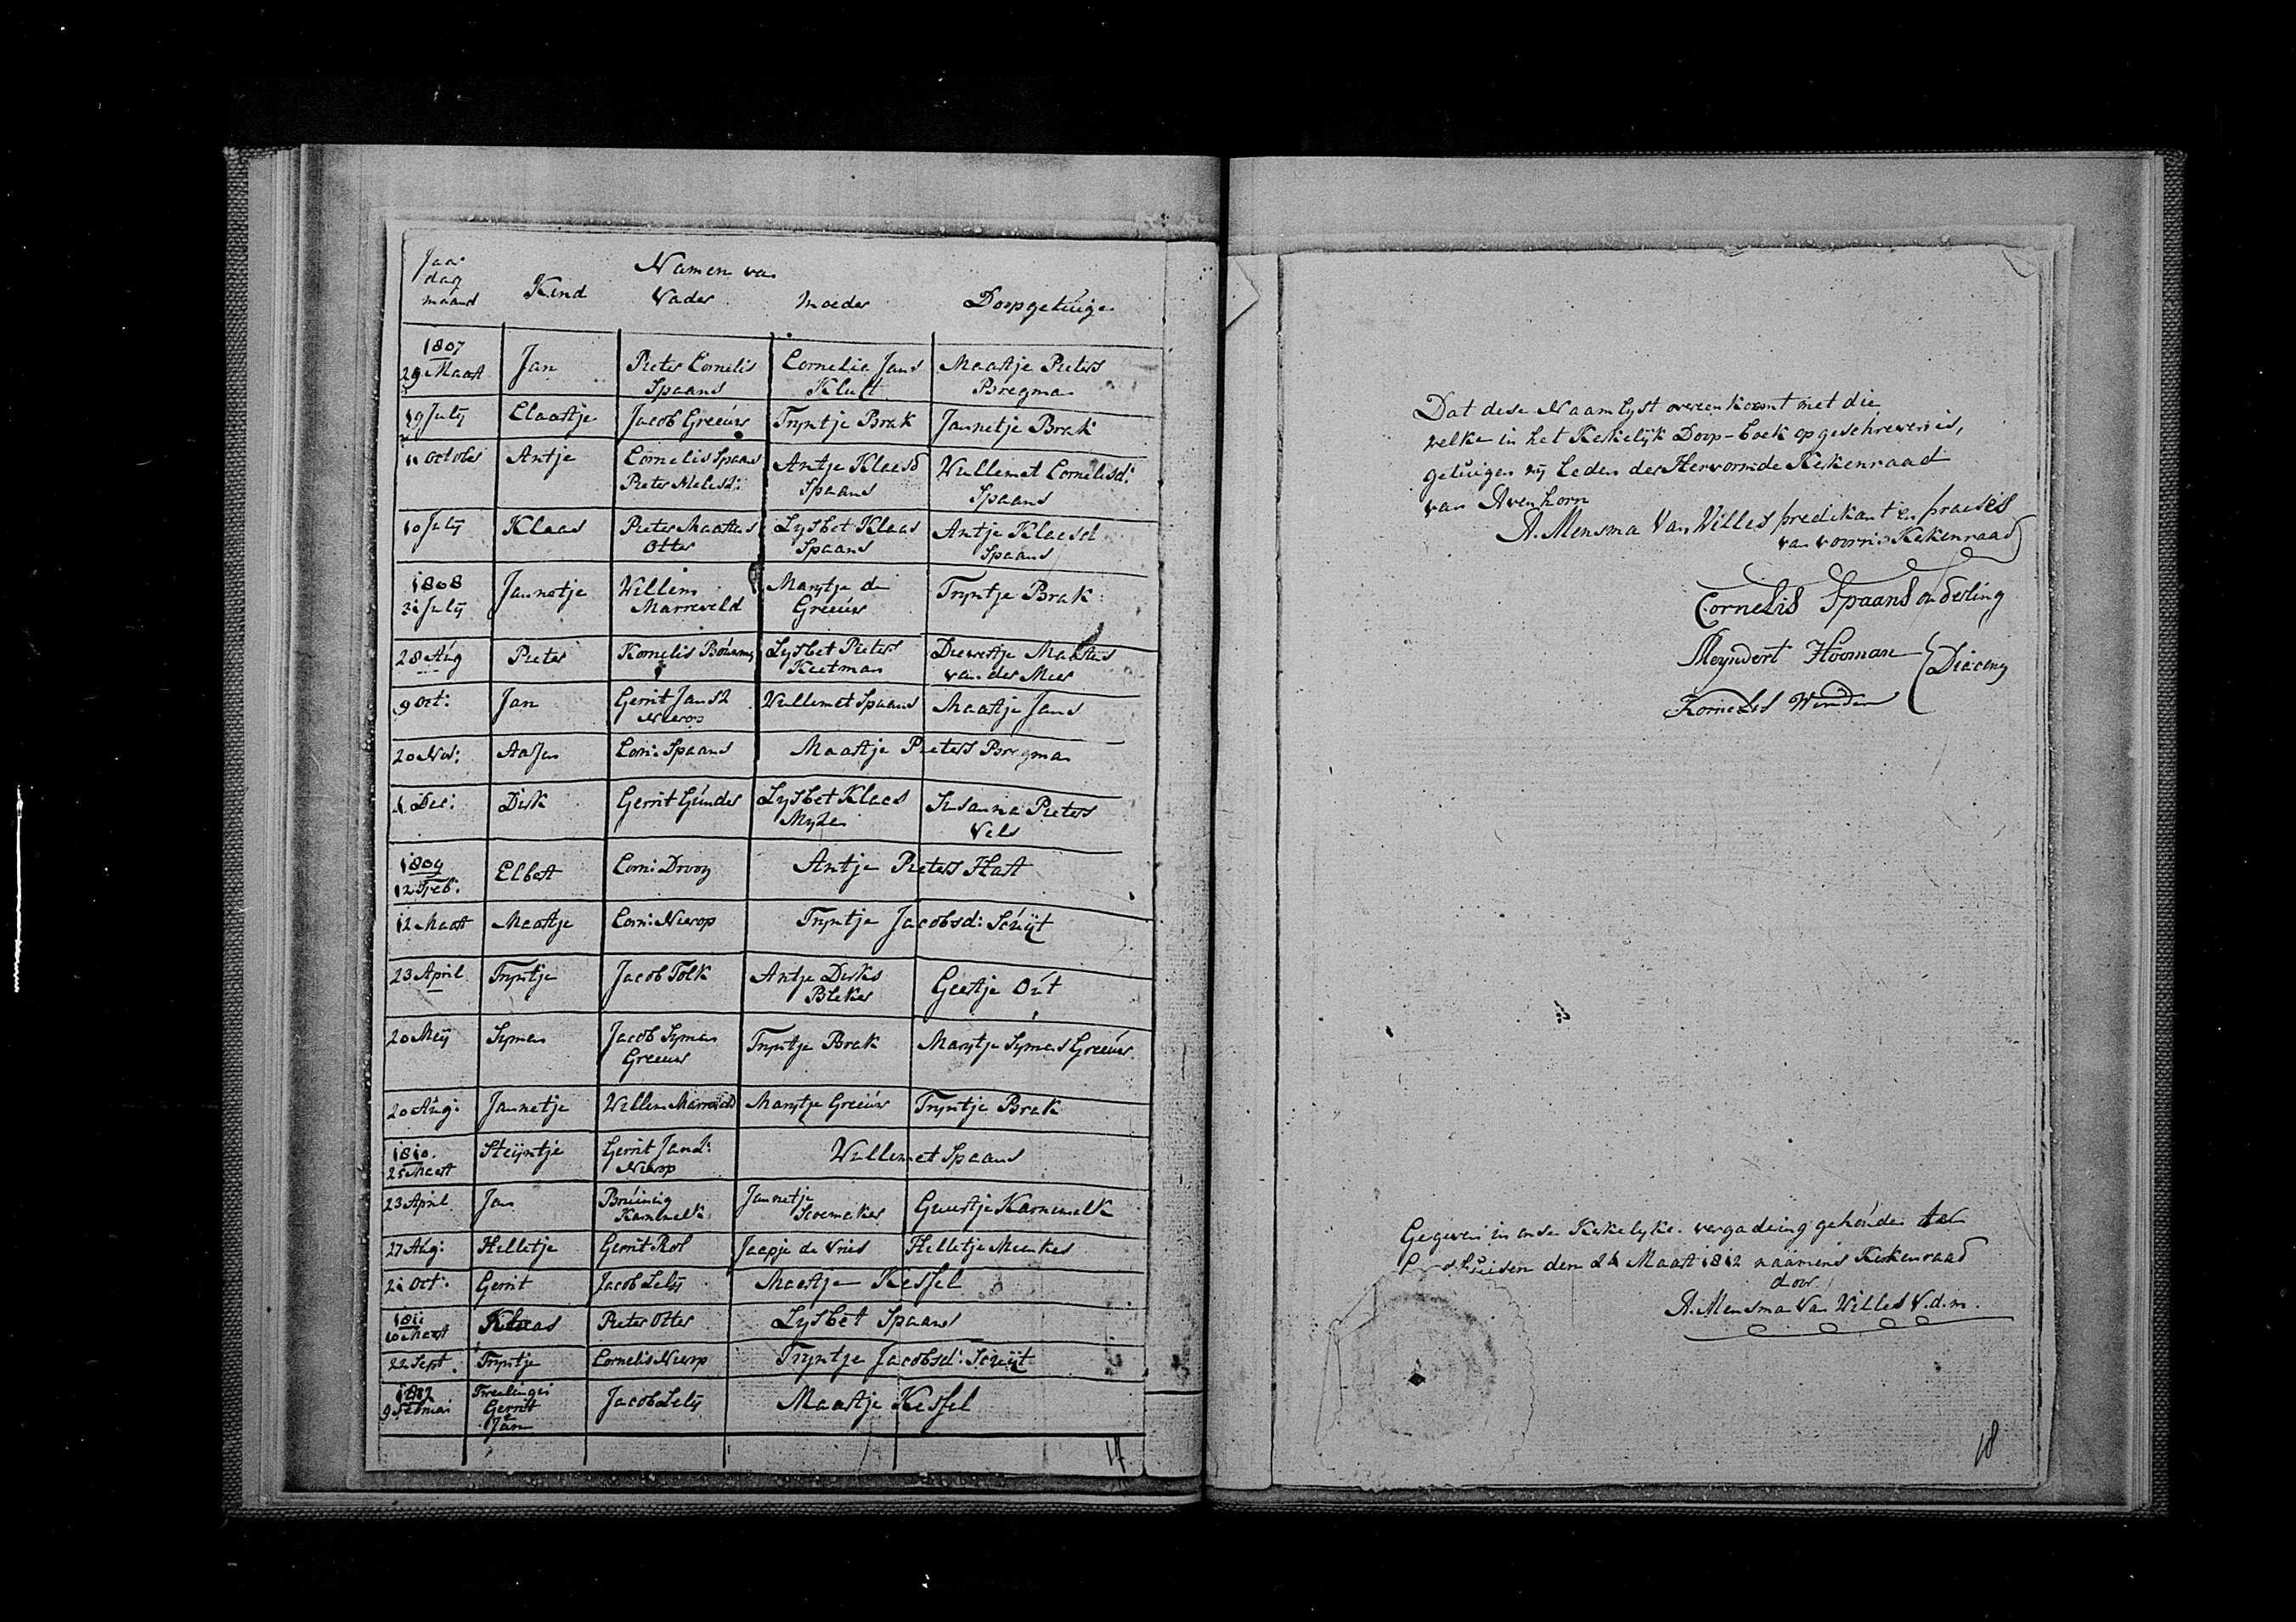 Jaar
dag
maand
Kind
Namen van
Vader
Moeder
Doopgetuige
1807
29 Maart Jan Pieter Cornelis Cornelia Jans Maartje Pieters
Spaans Kluft Bregman
19 July Claartje Jacob Greeuw Tryntje Brak Jannetje Brak
11 october Antje Cornelis Spaans Antje Klaasd Willemet Cornelisd:
Pieter Melisz: Spaans Spaans
10 July Klaas Pieter Maartens Lysbet Klaas Antje Klaesd
Otter Spaans Spaans
1808
31 July Jannetje Willem Marytje de Tryntje Brak
Marreveld Greeuw
28 Aug Pieter Kornelis Lysbet Pieters Diewertje Maartens
Keetman van der Meer
9 Oct: Jan Gerrit Jansz Willemet Spaans Maartje Jans
Nierop
20 Nov: Aafjen Corn: Spaans Maartje Pieters Bregman
Dec: Dirk Gerrit Gunder Lysbet Klaas Susanna Pieters
Vels
1809
12 Feb: Elbert Corn: Droog Antje Pieters Hart
12 Maart Maartje Corn: Nierop Tryntje Jacobsd: Schuijt
23 April Tryntje Jacob Tolk Antje Dirks Geertje Out
Bleker
20 Meij Symen Jacob Symen Tryntje Brak Marytje Symens Greeuw
Greeuw
20 Aug: Jannetje Willem Marreveld Marytje Greeuw Tryntje Brak
1810.
25 Maart Steijntje Gerrit Jansz: Willemet Spaans
Nierop
23 April Jan Bruining Jannetje Guurtje Karnemelk
Karnmelk Scoemaker
27 Aug: Hilletje Gerrit Rol Jaapje de Vries Hilletje Meenkes
21 Oct: Gerrit Jacob Lely Maartje Kessel
1811
10 Maart Klaas Pieter Otter Lysbet Spaans
22 Sept. Tryntje Cornelis Nierop Tryntje Jacobsd: Schuijt
1812
9 Februari Tweelingen Jacob Lely Maartje Kessel
Gerrit
Jan
17
Dat dese Naamlyst overeenkoomt met die
welke in het Kerkelijk Doop-boek opgeschreven is,
getuigen wij Leden der Hervormde Kerkenraad
van Avenhorn
A. Mensma Van Willes predikant en praeses
van voorn: Kerkenraad
Cornelis Spaans ouderling
Meyndert Hooman
Diacony
Kornelis
Gegeven in onse Kerkelyke vergadering gehouden ter
den 24 Maart 1812 naamens Kerkenraad
door
A. Mensma Van Willes V.d.m.
18